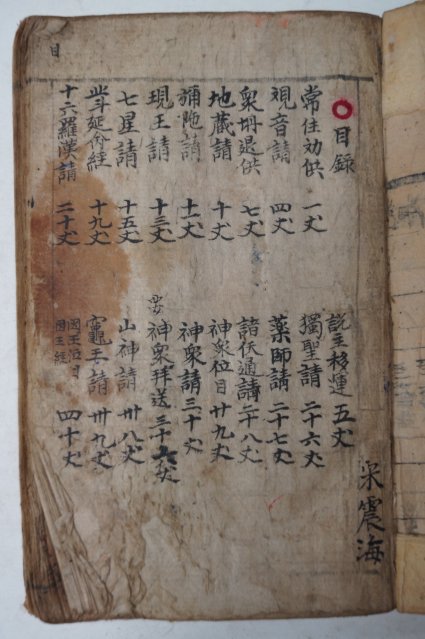 目録
常住劝供 一丈
觀音請 四丈
衆 退供 七丈
地藏請 十丈
彌陀請 十一丈
現王請 十三丈
七星請 十五丈
北斗延命經 十九丈
十六羅漢請 二十丈
說主移運 五丈
獨聖請 二十六丈
藥師請 二十七丈
諸天通請 二十八丈
神衆位目 卄九丈
神衆請 三十丈
神衆拜送 三十六丈
山神請 卅八丈
竈王請 卅九丈
国王位目
国王經 四十丈
宋震海
目